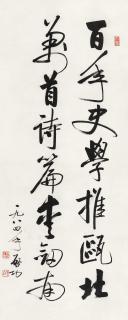 百年史學推甌北
萬首詩篇愛劍南
一九八四年 啟功